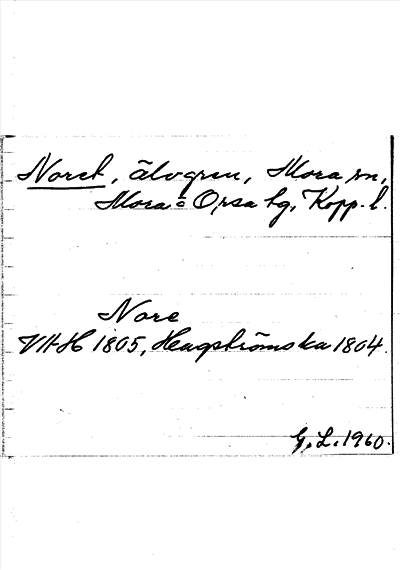 Noret, älvgren, Mora sn,
Mora o Orsa tg, Kopp. l.
Nore
VHH 1805, Hagströmska 1804.
G. L. 1960.